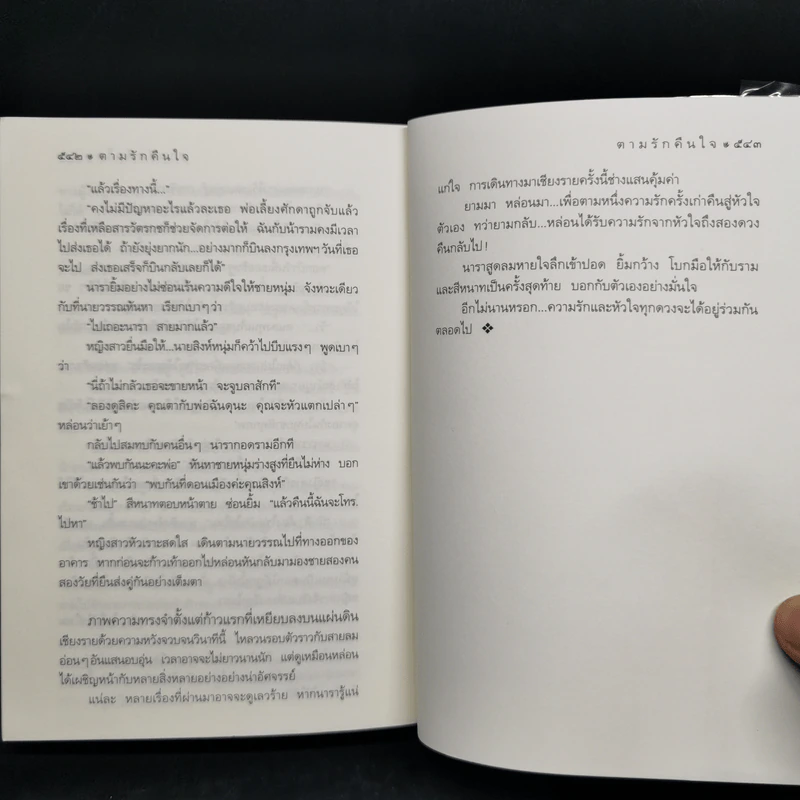 ๕๔๒ ๑ ตามรักคืนใจ
"แล้วเรื่องทางนี้..."
"คงไม่มีปัญหาอะไรแล้วล่ะเธอ พ่อเลี้ยงศักดาถูกจับแล้ว
เรื่องที่เหลือสารวัตรกชก็ช่วยจัดการต่อให้ ฉันกับน้ารามคงมีเวลา
ไปส่งเธอได้ ถ้ายังยุ่งยากนัก...อย่างมากก็บินลงกรุงเทพฯวันที่เธอ
จะไป ส่งเธอเสร็จก็บินกลับเลยก็ได้"
นารายิ้มอย่างไม่ซ่อนเร้นความดีใจให้ชายหนุ่ม จังหวะเดียว
กับที่นายวรรณหันหา เรียกเบาๆว่า
"ไปเถอะนารา สายมากแล้ว"
หญิงสาวยื่นมือให้...นายสิงห์หนุ่มก็คว้าไปบีบแรงๆ พูดเบาๆ
ว่า
"นี่ถ้าไม่กลัวเธอจะขายหน้า จะจูบลาสักที"
"ลองดูสิคะ คุณตากับพ่อฉันดุนะ คุณจะหัวแตกเปล่าๆ"
หล่อนว่าเย้าๆ
กลับไปสมทบกับคนอื่นๆ นารากอดรามอีกที
"แล้วพบกันนะคะพ่อ" หันหาชายหนุ่มร่างสูงที่ยืนไม่ห่าง บอก
เขาด้วยเช่นกันว่า "พบกันที่ดอนเมืองค่ะคุณสิงห์"
"ช้าไป" สีหนาทตอบหน้าตาย ซ่อนยิ้ม "แล้วคืนนี้ฉันจะโทร.
ไปหา"
หญิงสาวหัวเราะสดใส เดินตามนายวรรณไปที่ทางออกของ
อาคาร หากก่อนจะก้าวเท้าออกไปหล่อนหันกลับมามองชายสองคน
สองวัยที่ยืนส่งคู่กันอย่างเต็มตา
ภาพความทรงจำตั้งแต่ก้าวแรกที่เหยียบลงบนแผ่นดิน
เชียงรายด้วยความหวังจวบจนวินาทีนี้ ไหลวนรอบตัวราวกับสายลม
อ่อนๆอันแสนอบอุ่น เวลาอาจจะไม่ยาวนานนัก แต่ดูเหมือนหล่อน
ได้เผชิญหน้ากับหลายสิ่งหลายอย่างอย่างน่าอัศจรรย์
แน่ละ หลายเรื่องที่ผ่านมาอาจจะดูเลวร้าย หากนารารู้แน่
ตามรักคืนใจ ๑ ๕๔๓
แก่ใจ การเดินทางมาเชียงรายครั้งนี้ช่างแสนคุ้มค่า
ยามมา หล่อนมา...เพื่อตามหนึ่งความรักครั้งเก่าคืนสู่หัวใจ
ตัวเอง ทว่ายามกลับ...หล่อนได้รับความรักจากหัวใจถึงสองดวง
คืนกลับไป!
นาราสูดลมหายใจลึกเข้าปอด ยิ้มกว้าง โบกมือให้กับราม
และสีหนาทเป็นครั้งสุดท้าย บอกกับตัวเองอย่างมั่นใจ
อีกไม่นานหรอก...ความรักและหัวใจทุกดวงจะได้อยู่ร่วมกัน
ตลอดไป ❖